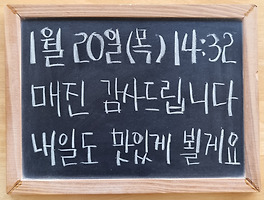 1월 20일(목) 14:32
매진 감사드립니다
내일도 맛있게 뵐게요